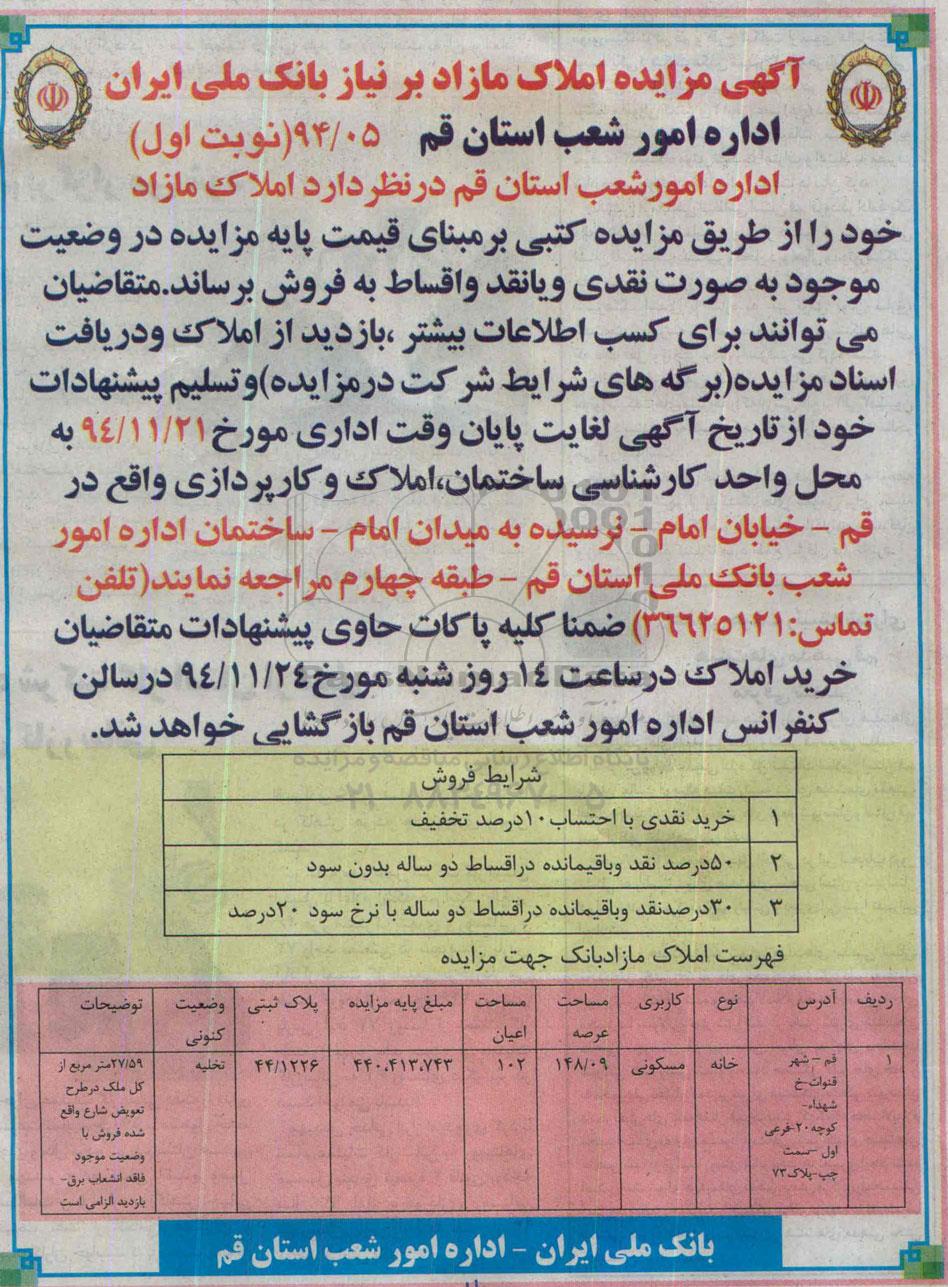 آگهی مزایده املاک مازاد بر نیاز بانک ملی ایران
اداره امور شعب استان قم ۹۴/۰۵(نوبت اول)
اداره امورشعب استان قم درنظردارد املاک مازاد
خود را از طریق مزایده کتبی برمبنای قیمت پایه مزایده در وضعیت
موجود به صورت نقدی ویانقد واقساط به فروش برساند.متقاضیان
می توانند برای کسب اطلاعات بیشتر ،بازدید از املاک ودریافت
اسناد مزایده(برگه های شرایط شرکت درمزایده)وتسلیم پیشنهادات
خود ازتاریخ آگهی لغایت پایان وقت اداری مورخ۹۴/۱۱/۲۱ به
محل واحد کارشناسی ساختمان،املاک وکارپردازی واقع در
قم - خیابان امام - نرسیده به میدان امام - ساختمان اداره امور
شعب بانک ملی استان قم - طبقه چهارم مراجعه نمایند(تلفن
تماس:۳۶۶۲۵۱۲۱) ضمنا کلیه پاکات حاوی پیشنهادات متقاضیان
خرید املاک درساعت ۱۴ روز شنبه مورخ۹۴/۱۱/۲۴ درسالن
کنفرانس اداره امور شعب استان قم بازگشایی خواهد شد.
پایگاه اطلاع رسانی مناقصه و مزایده
شرایط فروش
۱ خرید نقدی با احتساب۱۰درصد تخفیف
۲ ۵۰درصد نقد وباقیمانده دراقساط دو ساله بدون سود
۳ ۳۰درصدنقد وباقیمانده دراقساط دو ساله با نرخ سود ۲۰درصد
فهرست املاک مازادبانک جهت مزایده
ردیف آدرس نوع کاربری مساحت عرصه مساحت اعیان مبلغ پایه مزایده پلاک ثبتی وضعیت کنونی توضیحات
۱ قم - شهر خانه مسکونی ۱۴۸/۰۹ ۱۰۲ ۴۴۰،۴۱۳،۷۴۳ ۴۴/۱۲۲۶ تخلیه ۲۷/۵۹متر مربع از
قنوات-خ کل ملک درطرح
شهداء- تعویض شارع واقع
کوچه۲۰-فرعی شده فروش با
اول -سمت وضعیت موجود
چپ-پلاک۷۳ فاقد انشعاب برق-
بازدید الزامی است
بانک ملی ایران - اداره امور شعب استان قم